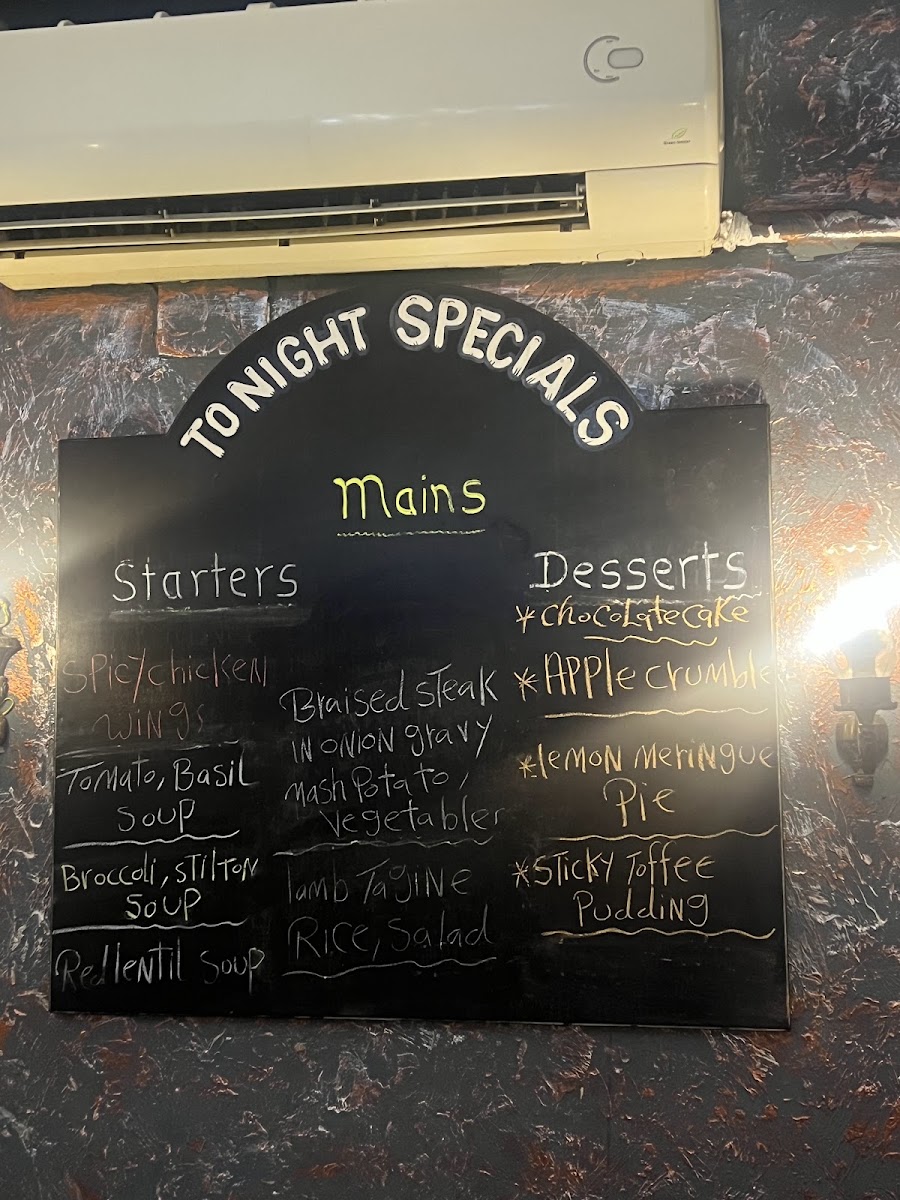 TONIGHT SPECIALS
Mains
Starters
Spicy chicken
wings
Tomato, Basil
Soup
Broccoli, Stilton
Soup
Red lentil Soup
Braised steak
in onion gravy
mash Potato,
vegetables
lamb Tagine
Rice, Salad
Desserts
*chocolate cake
*Apple crumble
*lemon meringue
Pie
*Sticky Toffee
Pudding